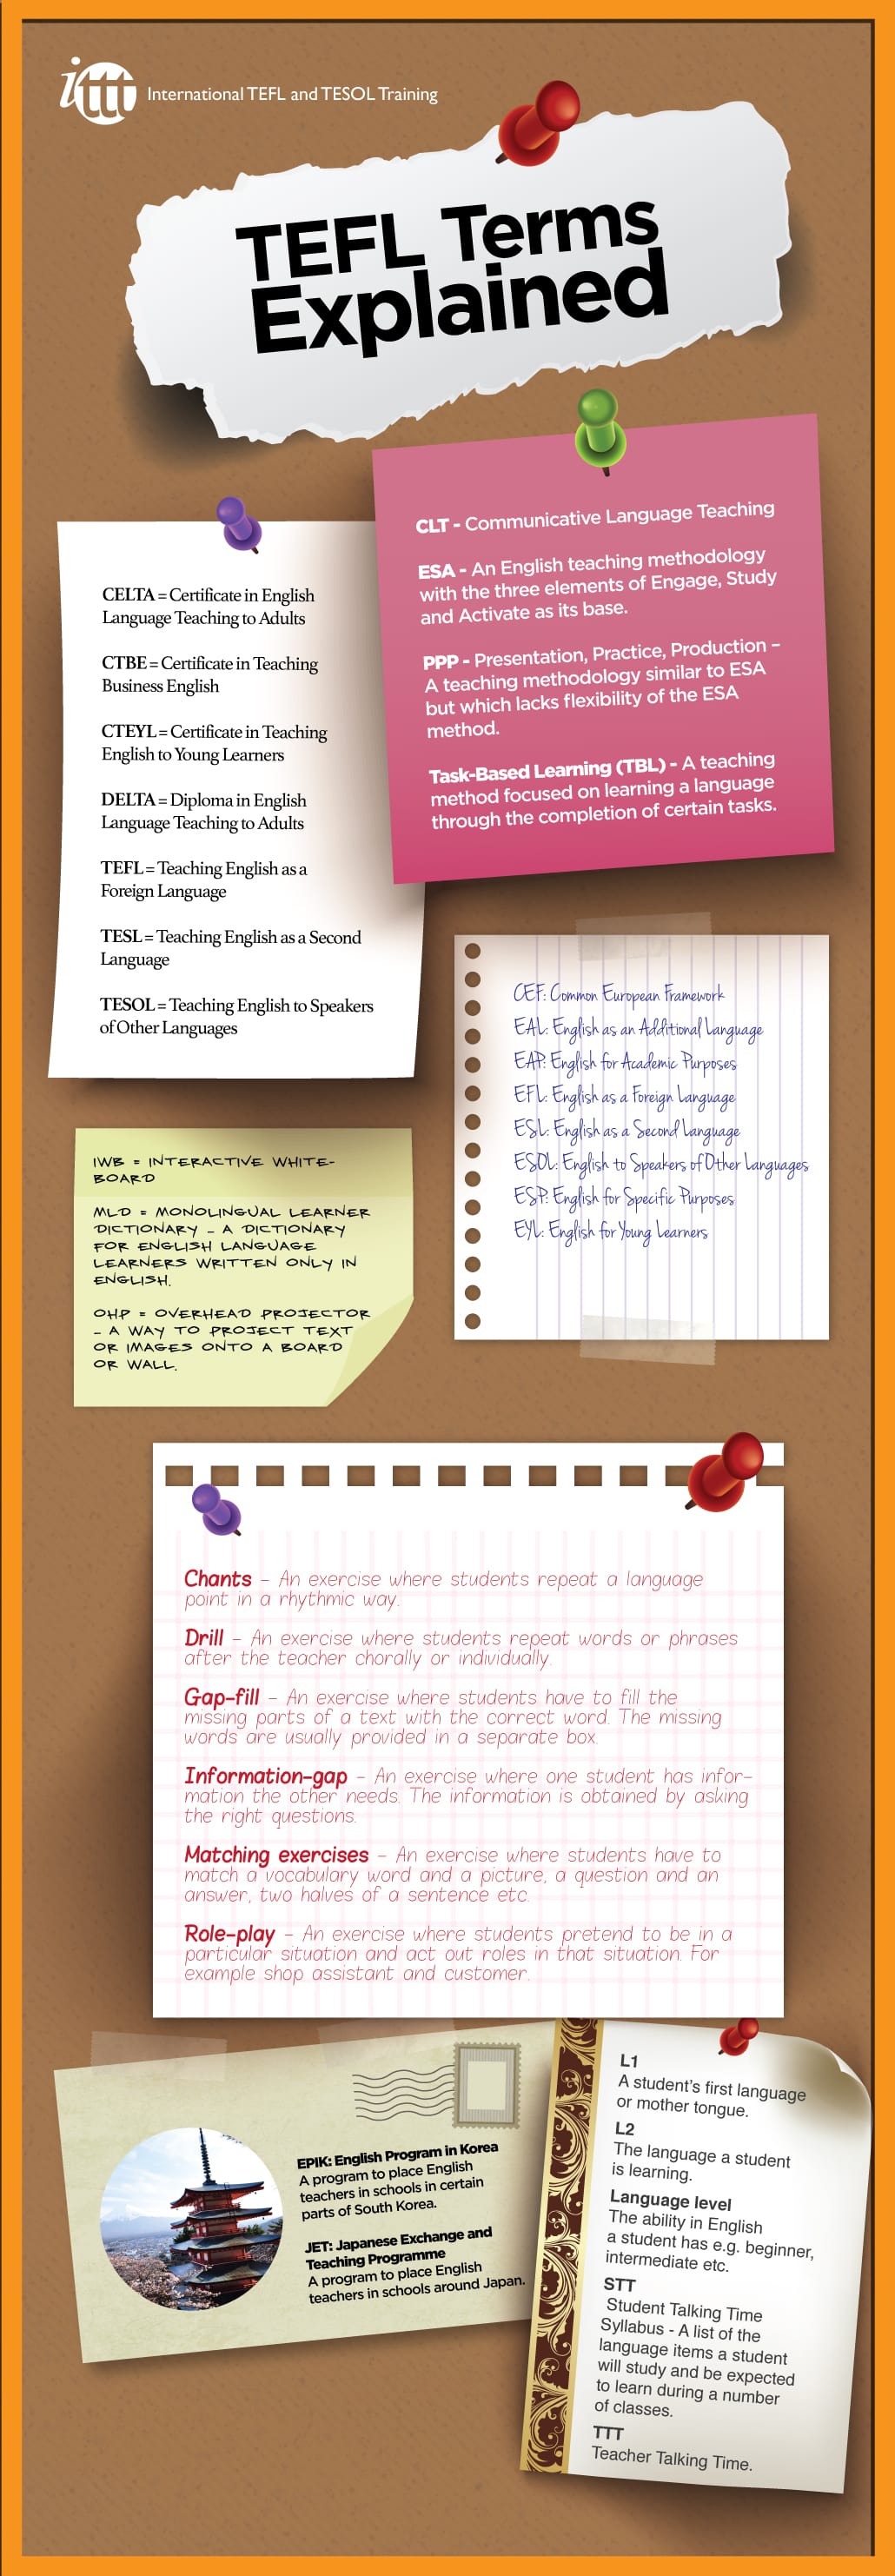 ittt International TEFL and TESOL Training
TEFL Terms
Explained
CLT - Communicative Language Teaching
ESA - An English teaching methodology
with the three elements of Engage, Study
and Activate as its base.
PPP - Presentation, Practice, Production –
A teaching methodology similar to ESA
but which lacks flexibility of the ESA
method.
Task-Based Learning (TBL) - A teaching
method focused on learning a language
through the completion of certain tasks.
CELTA = Certificate in English
Language Teaching to Adults
CTBE = Certificate in Teaching
Business English
CTEYL = Certificate in Teaching
English to Young Learners
DELTA = Diploma in English
Language Teaching to Adults
TEFL = Teaching English as a
Foreign Language
TESL = Teaching English as a Second
Language
TESOL = Teaching English to Speakers
of Other Languages
CEF: Common European Framework
EAL: English as an Additional Language
EAP: English for Academic Purposes
EFL: English as a Foreign Language
ESL: English as a Second Language
ESOL: English to Speakers of Other Languages
ESP: English for Specific Purposes
EYL: English for Young Learners
IWB = INTERACTIVE WHITE-
BOARD
MLD = MONOLINGUAL LEARNER
DICTIONARY – A DICTIONARY
FOR ENGLISH LANGUAGE
LEARNERS WRITTEN ONLY IN
ENGLISH.
OHP = OVERHEAD PROJECTOR
– A WAY TO PROJECT TEXT
OR IMAGES ONTO A BOARD
OR WALL.
Chants - An exercise where students repeat a language
point in a rhythmic way.
Drill - An exercise where students repeat words or phrases
after the teacher chorally or individually.
Gap-fill - An exercise where students have to fill the
missing parts of a text with the correct word. The missing
words are usually provided in a separate box.
Information-gap - An exercise where one student has infor-
mation the other needs. The information is obtained by asking
the right questions.
Matching exercises - An exercise where students have to
match a vocabulary word and a picture, a question and an
answer, two halves of a sentence etc.
Role-play - An exercise where students pretend to be in a
particular situation and act out roles in that situation. For
example shop assistant and customer.
EPIK: English Program in Korea
A program to place English
teachers in schools in certain
parts of South Korea.
JET: Japanese Exchange and
Teaching Programme
A program to place English
teachers in schools around Japan.
L1
A student's first language
or mother tongue.
L2
The language a student
is learning.
Language level
The ability in English
a student has e.g. beginner,
intermediate etc.
STT
Student Talking Time
Syllabus - A list of the
language items a student
will study and be expected
to learn during a number
of classes.
TTT
Teacher Talking Time.